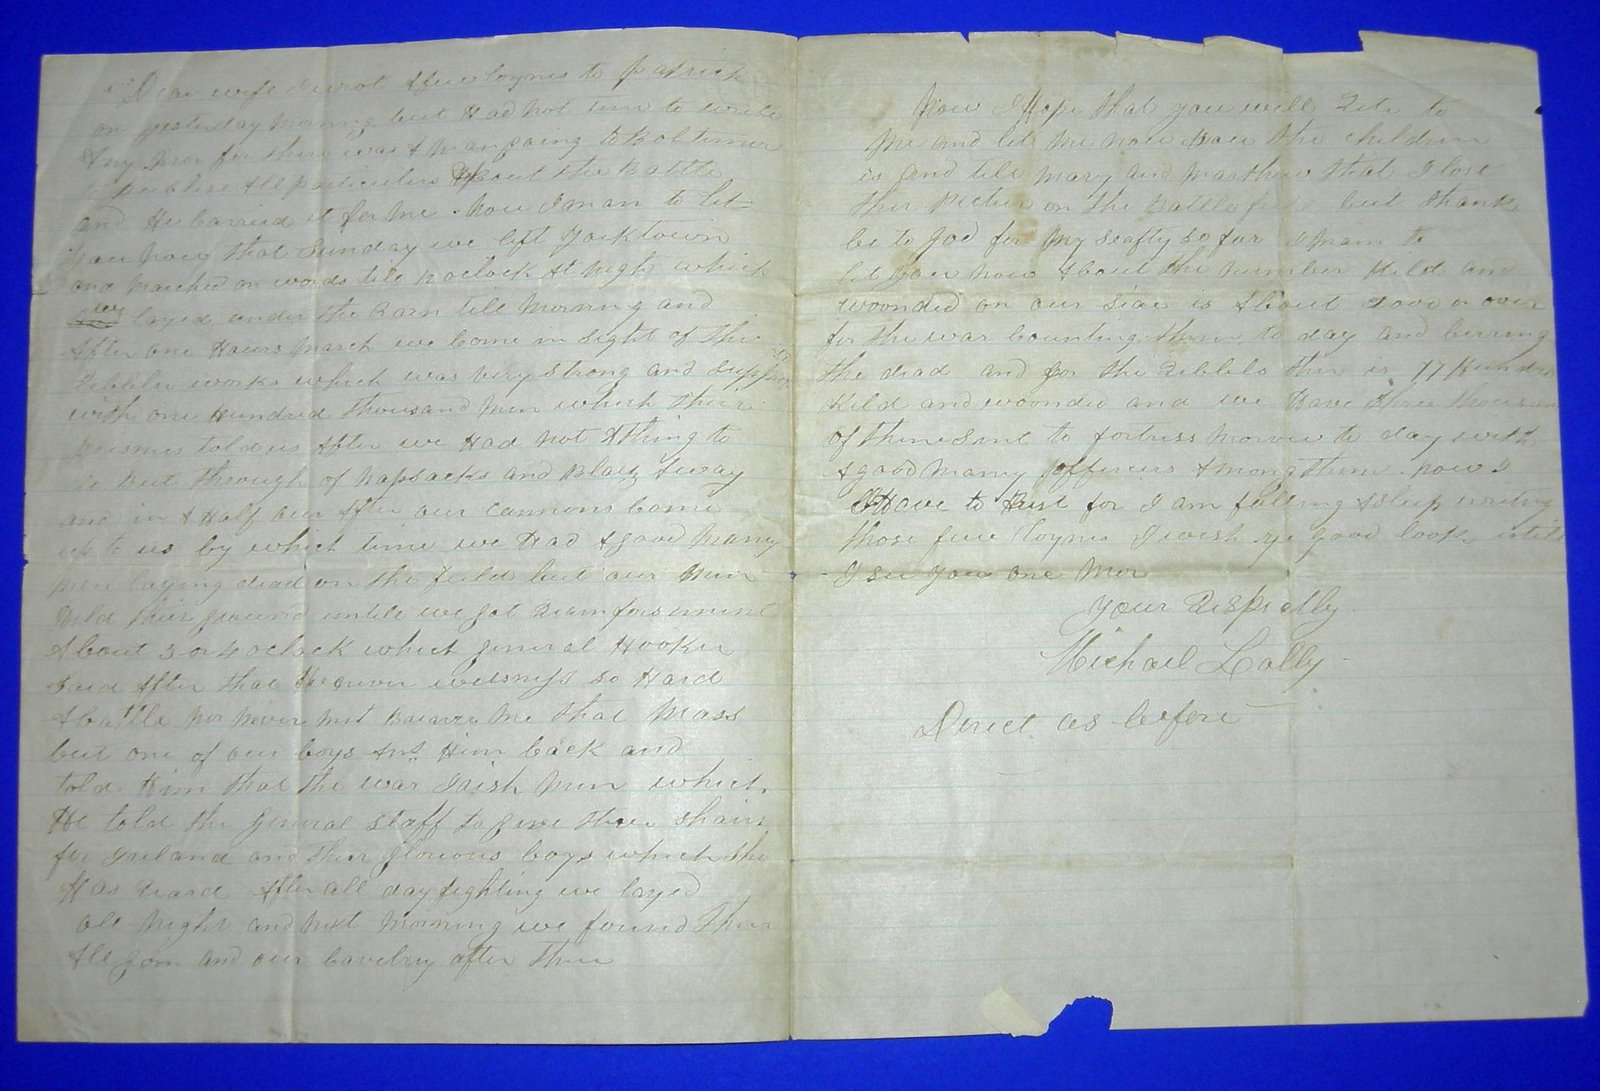 Dear wife I wrot A few loynes to Patrick
on yesterday morning but Had not time to write
Any mor for thire was A man going to Boltimor
to publise All particulers About the Battle
and He Carried it for me. Now I man to let
you now that Sunday we left yorktown
and marched on words till 12 oclock At nigh which
we layed under the Rain till morning and
After one Hours march we Come in sight of the
Ribbler works which was very strong and
with one Hundred thousand men which their
prisnrs told us After we Had not Athing to
do but through of napsacks and Blaiz Away
and in A Half our After our Cannons Come
up to us by which time we Had A good many
men laying dead on the feild but our men
Held their ground untile we got Reinforsment
About 3 or 4 oclock which general Hooker
Said After that He never witnniss so Hard
A battle nor never met Braver me that Mass
but one of our boys Ans Him back and
told Him that the war Irish men which
He told the general staff to give three Chairs
for Ireland and their glorious boys which the
Has Heard After all day fighting we layed
all night and next morning we found them
All gon and our Cavelry after them
Now I Hope that you will Rite to
me and let me now How the Children
is and tell mary and Marthew that I lose
ther Picter on the Battle but thank
be to god for my seafty so far I man to
let you now About the number Kild and
woonded on our side is About 2000 or over
for the war Counting them to day and berring
the dead and for the Ribbels thir is 77 Hundred
Kild and woonded and we Have three thousand
of them sent to fortress to day with
A good many officers Among them. now I
Have to Hurt for I am falling Asleep writing
those few loynes I wish ye good look untill
I see you one mor
your Respictlly
Michael Lally
Direct as before